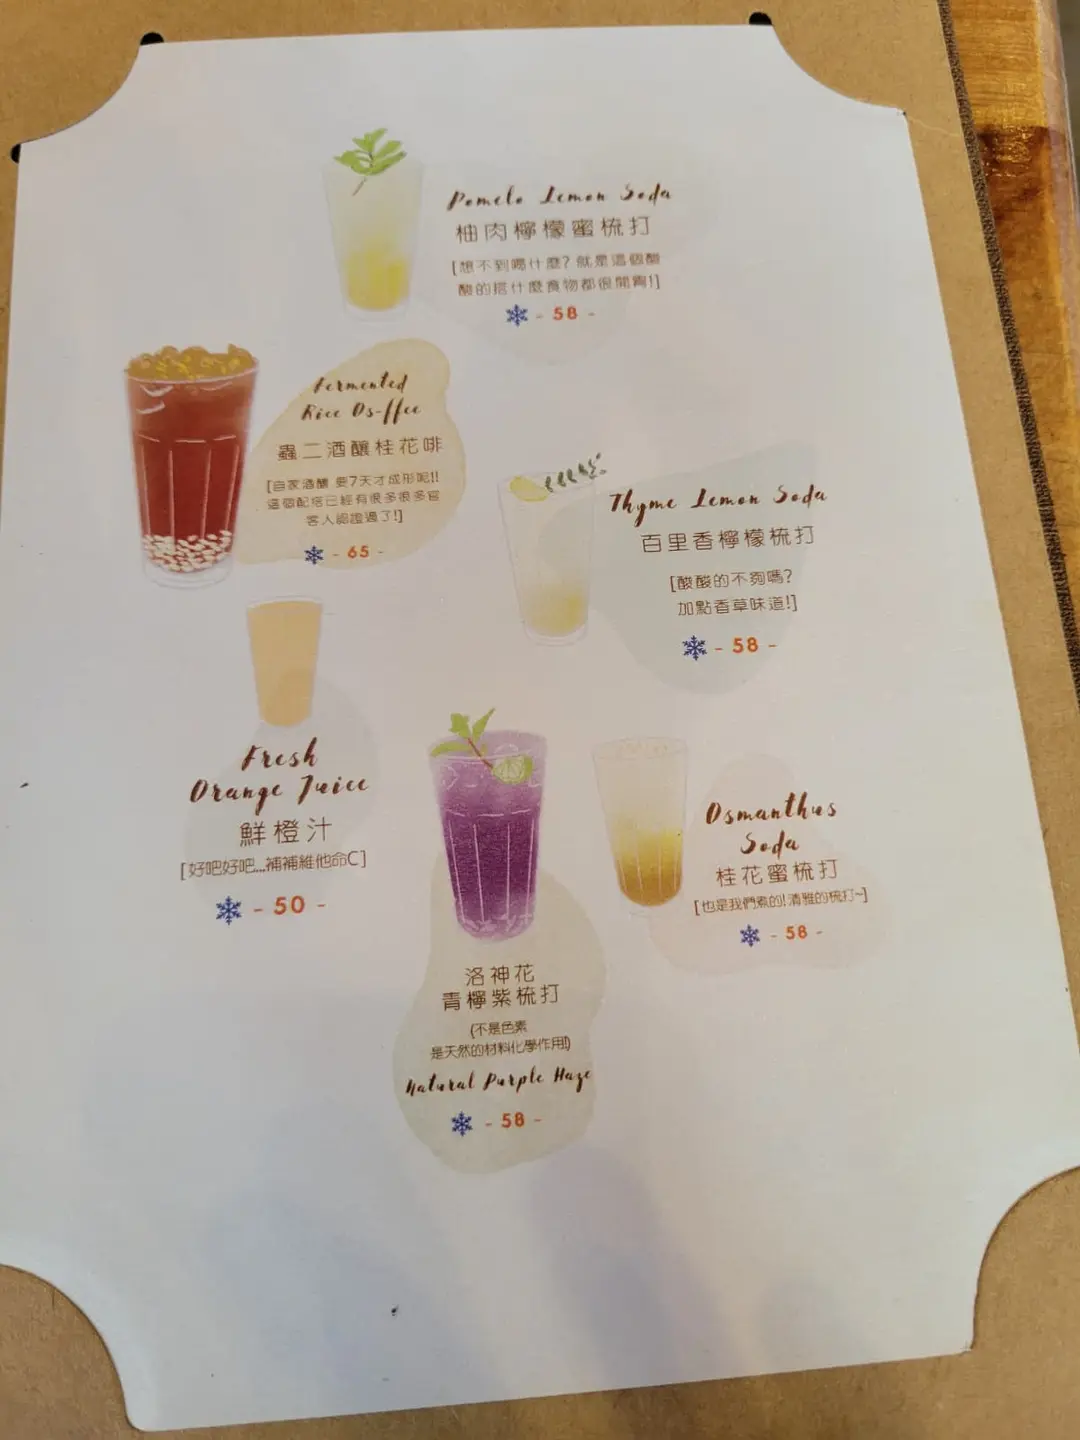 Pomelo Lemon Soda
柚肉檸檬蜜梳打
[想不到喝什麼? 就是這個酸
酸的搭什麼食物都很開胃!]
- 58 -
Fermented
Rice Os-ffee
蟲二酒釀桂花啡
[自家酒釀 要7天才成形呢!!
這個配搭已經有很多很多官
客人認證過了!]
- 65 -
Thyme Lemon Soda
百里香檸檬梳打
[酸酸的不夠嗎?
加點香草味道!]
- 58 -
Fresh
Orange Juice
鮮橙汁
[好吧好吧...補補維他命C]
- 50 -
Osmanthus
Soda
桂花蜜梳打
[也是我們煮的! 清雅的梳打~]
- 58 -
洛神花
青檸紫梳打
(不是色素
是天然的材料化學作用!)
Natural Purple Haze
- 58 -